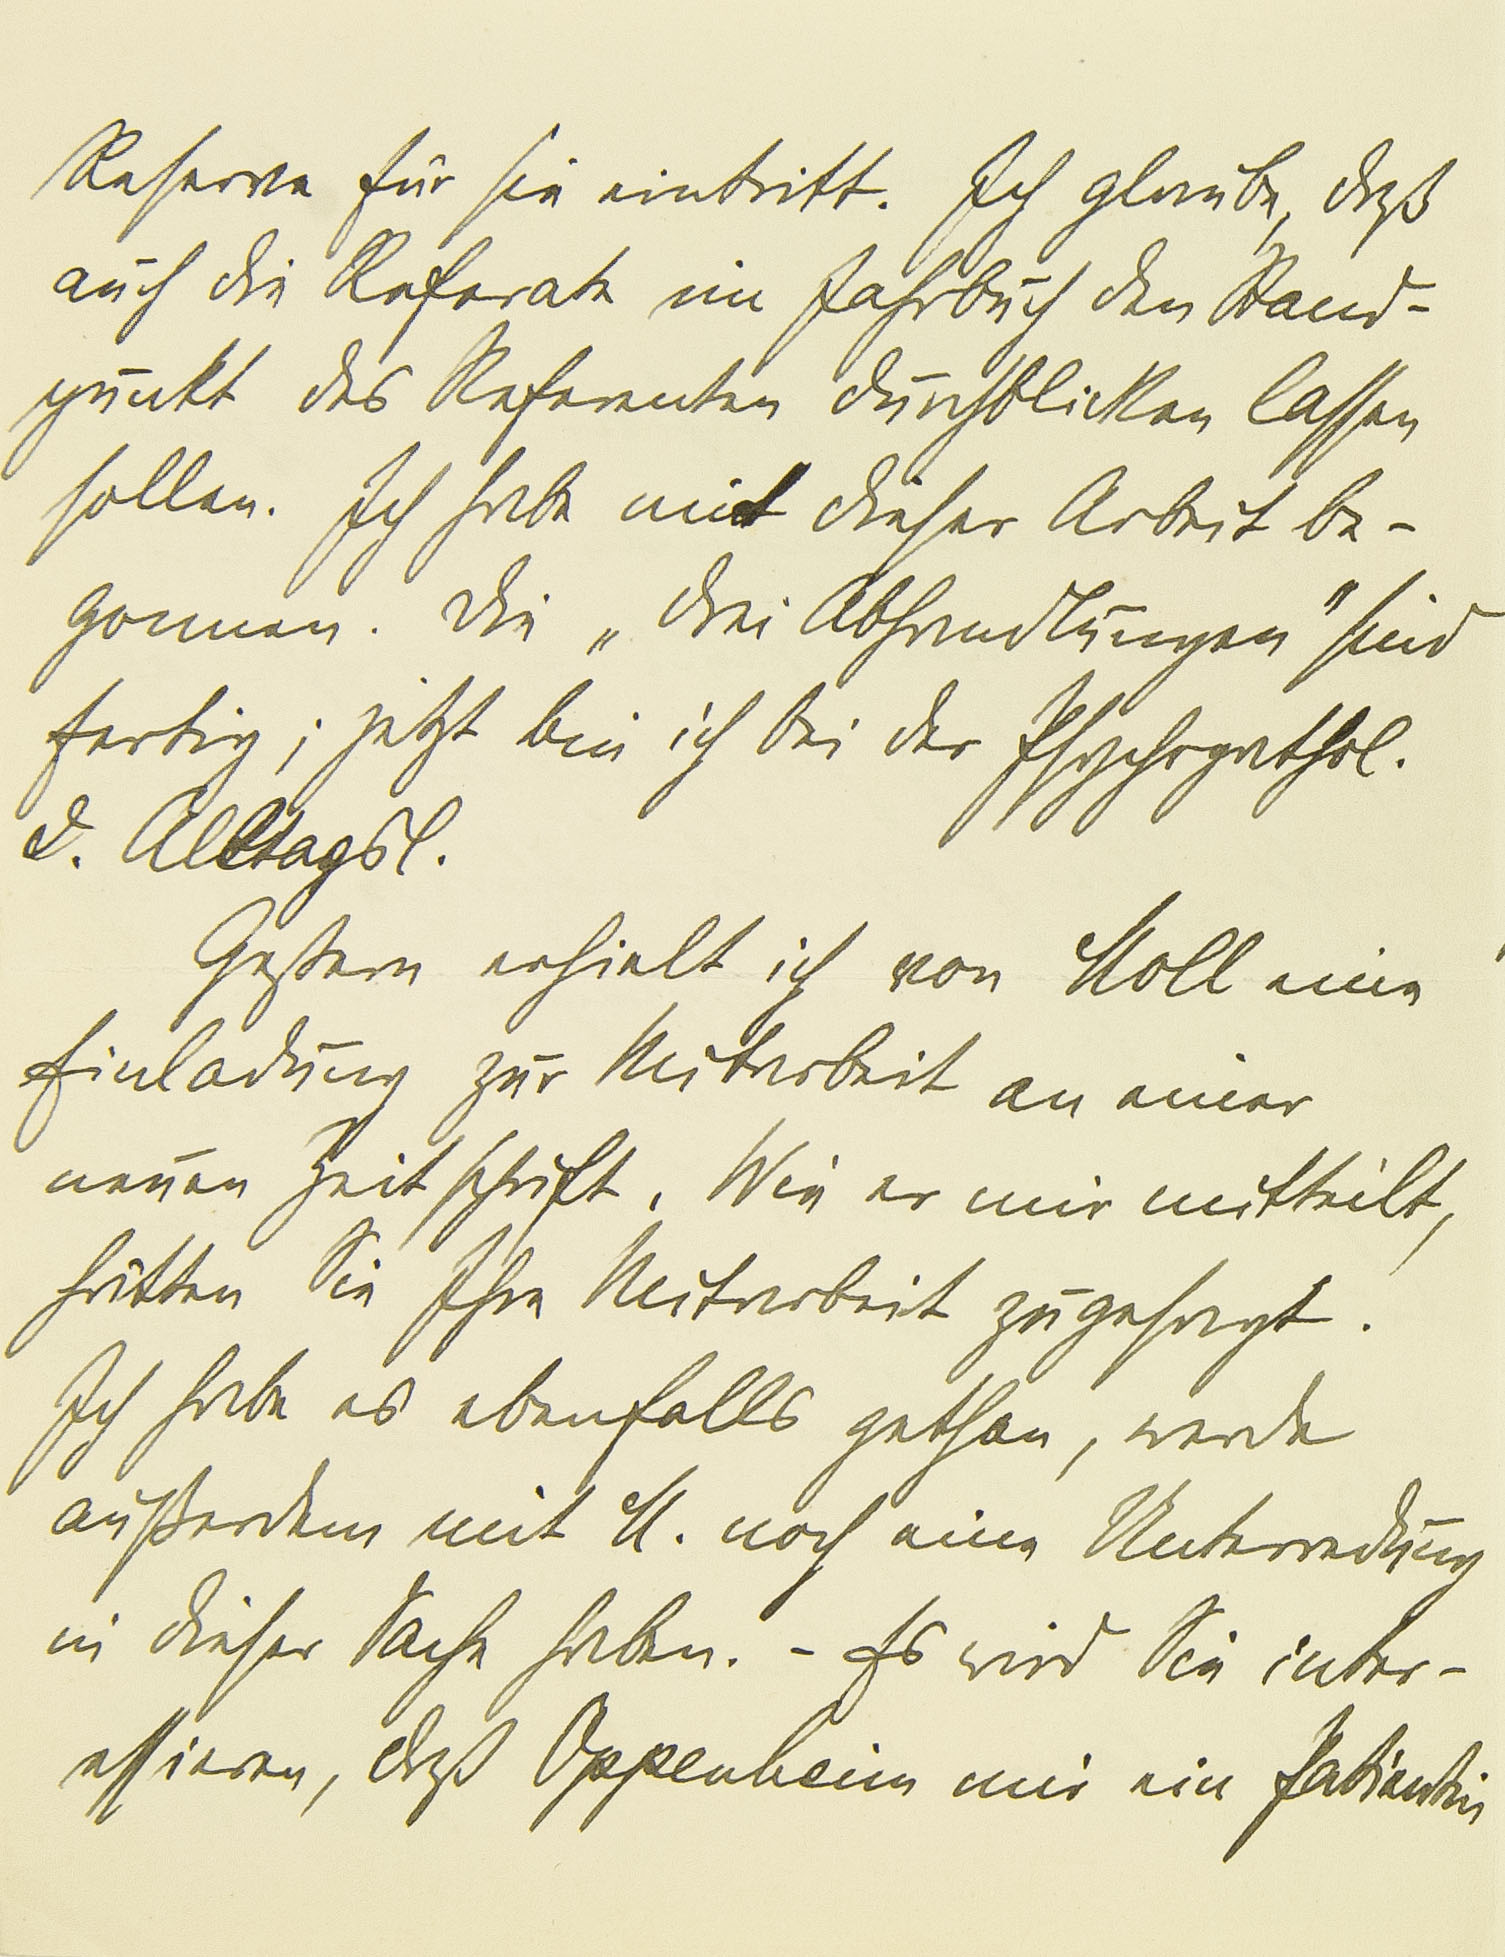 Reserve für sie eintritt. Ich glaube, daß
auch die Referate im Jahrbuch den Stand-
punkt des Referenten durchblicken lassen
sollen. Ich habe mit dieser Arbeit be-
gonnen. Die „drei Abhandlungen" sind
fertig; jetzt bin ich bei der Psychopathol.
d. Alltagsl.
Gestern erhielt ich von Moll eine
Einladung zur Mitarbeit an einer
neuen Zeitschrift. Wie er mir mitteilt,
hätten Sie Ihre Mitarbeit zugesagt.
Ich habe es ebenfalls gethan, werde
außerdem mit M. noch eine Unterredung
in dieser Sache haben. – Es wird Sie inter-
essieren, daß Oppenheim mir ein Patientin